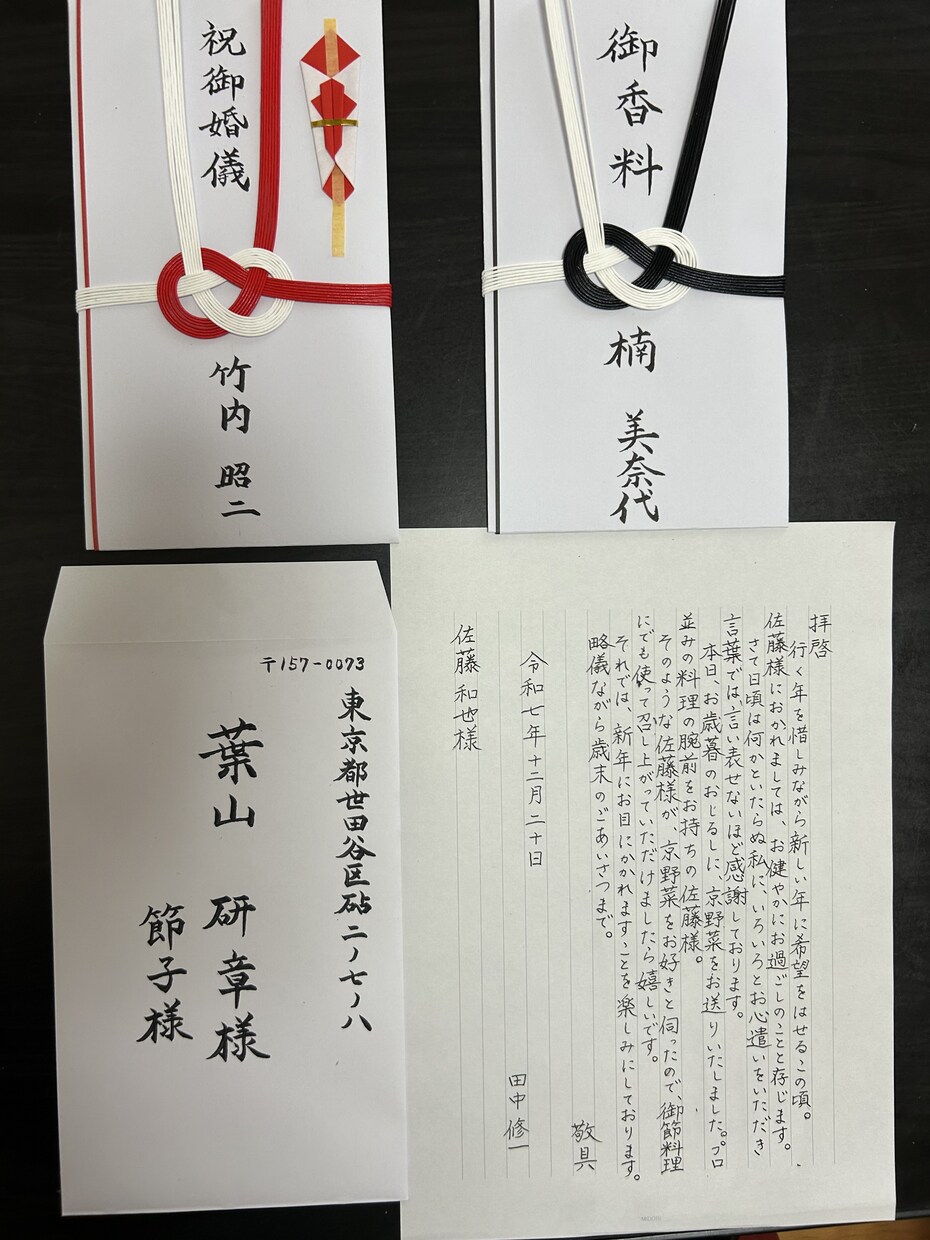 祝御婚儀
竹内 昭二
御香料
楠 美奈代
〒157-0073
東京都世田谷区砧二ノ七ノ八
葉山 研章様
節子様
拝啓
行く年を惜しみながら新しい年に希望をはせるこの頃。
佐藤様におかれましては、お健やかにお過ごしのことと存じます。
さて日頃は何かといたらぬ私に、いろいろとお心遣いをいただき
言葉では、言い表せないほど感謝しております。
本日、お歳暮のおしるしに、京野菜をお送りいたしました。プロ
並みの料理の腕前をお持ちの佐藤様。
そのような佐藤様が、京野菜をお好きと伺ったので、御節料理
にでも使って召し上がっていただけましたら嬉しいです。
それでは、新年にお目にかかれますことを楽しみにしております。
略儀ながら歳末のごあいさつまで。
敬具
令和七年十二月二十日
田中修一
佐藤和也様